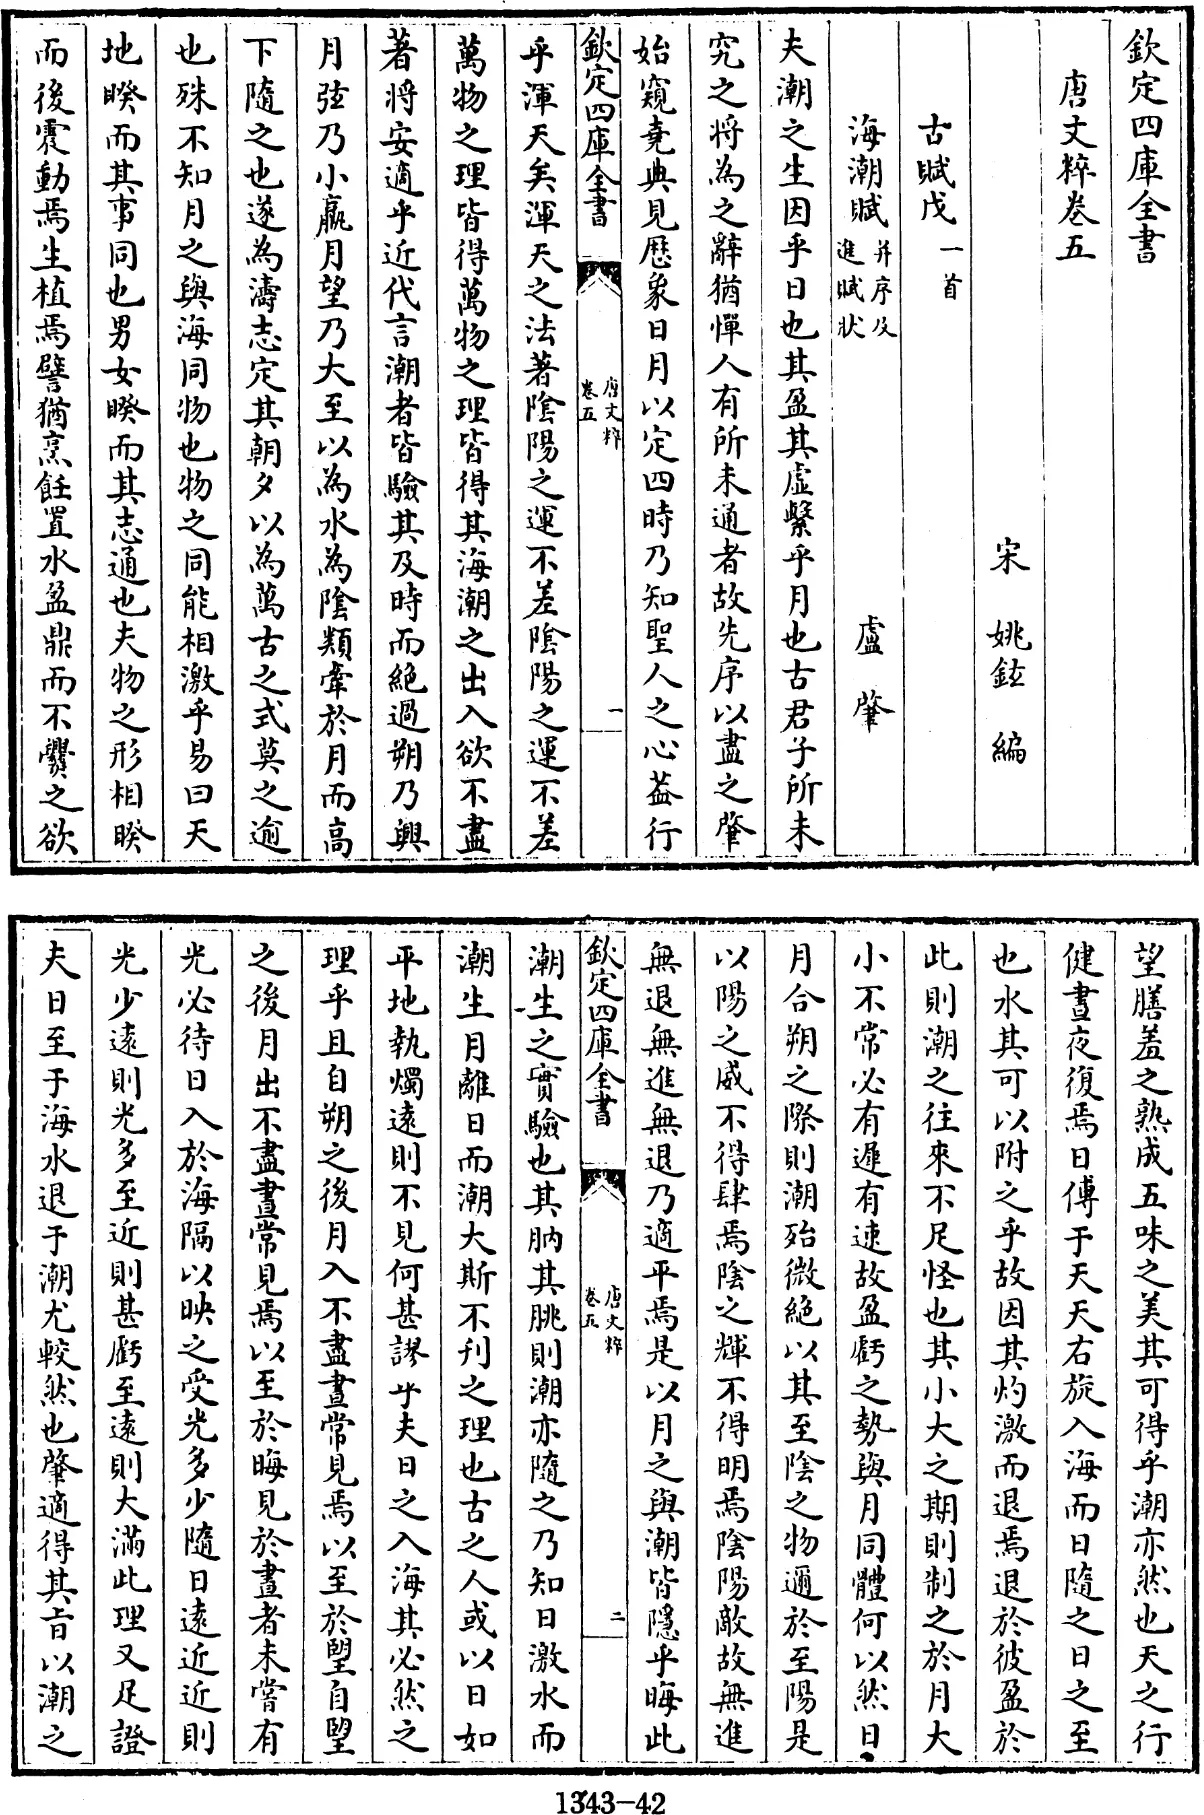 欽定四庫全書
唐文粹卷五
宋　姚鉉　編
古賦戊一首
海潮賦并序及進賦狀　盧肇
夫潮之生因乎日也其盈其虛繫乎月也古君子所未
究之將為之辭猶憚人有所未通者故先序以盡之肇
始窺堯典見厯象日月以定四時乃知聖人之心葢行
欽定四庫全書
唐文粹
卷五
一
乎渾天矣渾天之法著陰陽之運不差陰陽之運不差
萬物之理皆得萬物之理皆得其海潮之出入欲不盡
著將安適乎近代言潮者皆驗其及時而絶過朔乃興
月弦乃小贏月望乃大至以為水為陰類牽於月而高
下隨之也遂為濤志定其朝夕以為萬古之式莫之逾
也殊不知月之與海同物也物之同能相激乎易曰天
地睽而其事同也男女睽而其志通也夫物之形相睽
而後震動焉生植焉譬猶烹飪置水盈鼎而不爨之欲
望膳羞之熟成五味之美其可得乎潮亦然也天之行
健晝夜復焉日傅于天天右旋入海而日隨之日之至
也水其可以附之乎故因其灼激而退焉退於彼盈於
此則潮之往來不足怪也其小大之期則制之於月大
小不常必有遲有速故盈虧之勢與月同體何以然日
月合朔之際則潮殆微絶以其至陰之物邇於至陽是
以陽之威不得肆焉陰之輝不得明焉陰陽敵故無進
無退無進無退乃適平焉是以月之與潮皆隱乎晦此
欽定四庫全書
唐文粹
卷五
二
潮生之實驗也其朒其朓則潮亦隨之乃知日激水而
潮生月離日而潮大斯不刊之理也古之人或以日如
平地執燭遠則不見何甚謬乎夫日之入海其必然之
理乎且自朔之後月入不盡晝常見焉以至於朢自朢
之後月出不盡晝常見焉以至於晦見於晝者未嘗有
光必待日入於海隔以映之受光多少隨日遠近近則
光少遠則光多至近則甚虧至遠則大滿此理又足證
夫日至于海水退于潮尤較然也肇適得其㫖以潮之
1343-42